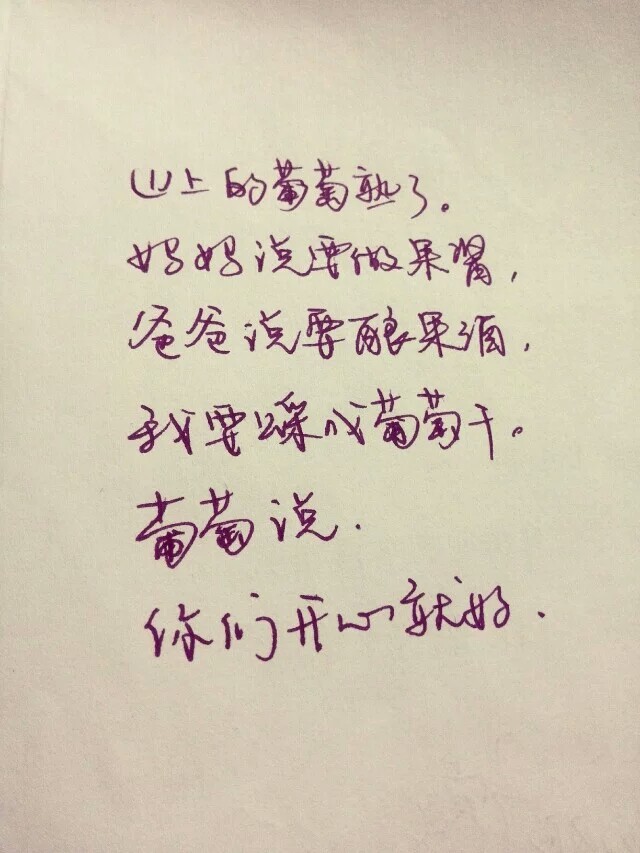 山上的葡萄熟了。
妈妈说要做果酱,
爸爸说要酿果酒,
我要踩成葡萄干。
葡萄说.
你们开心就好.